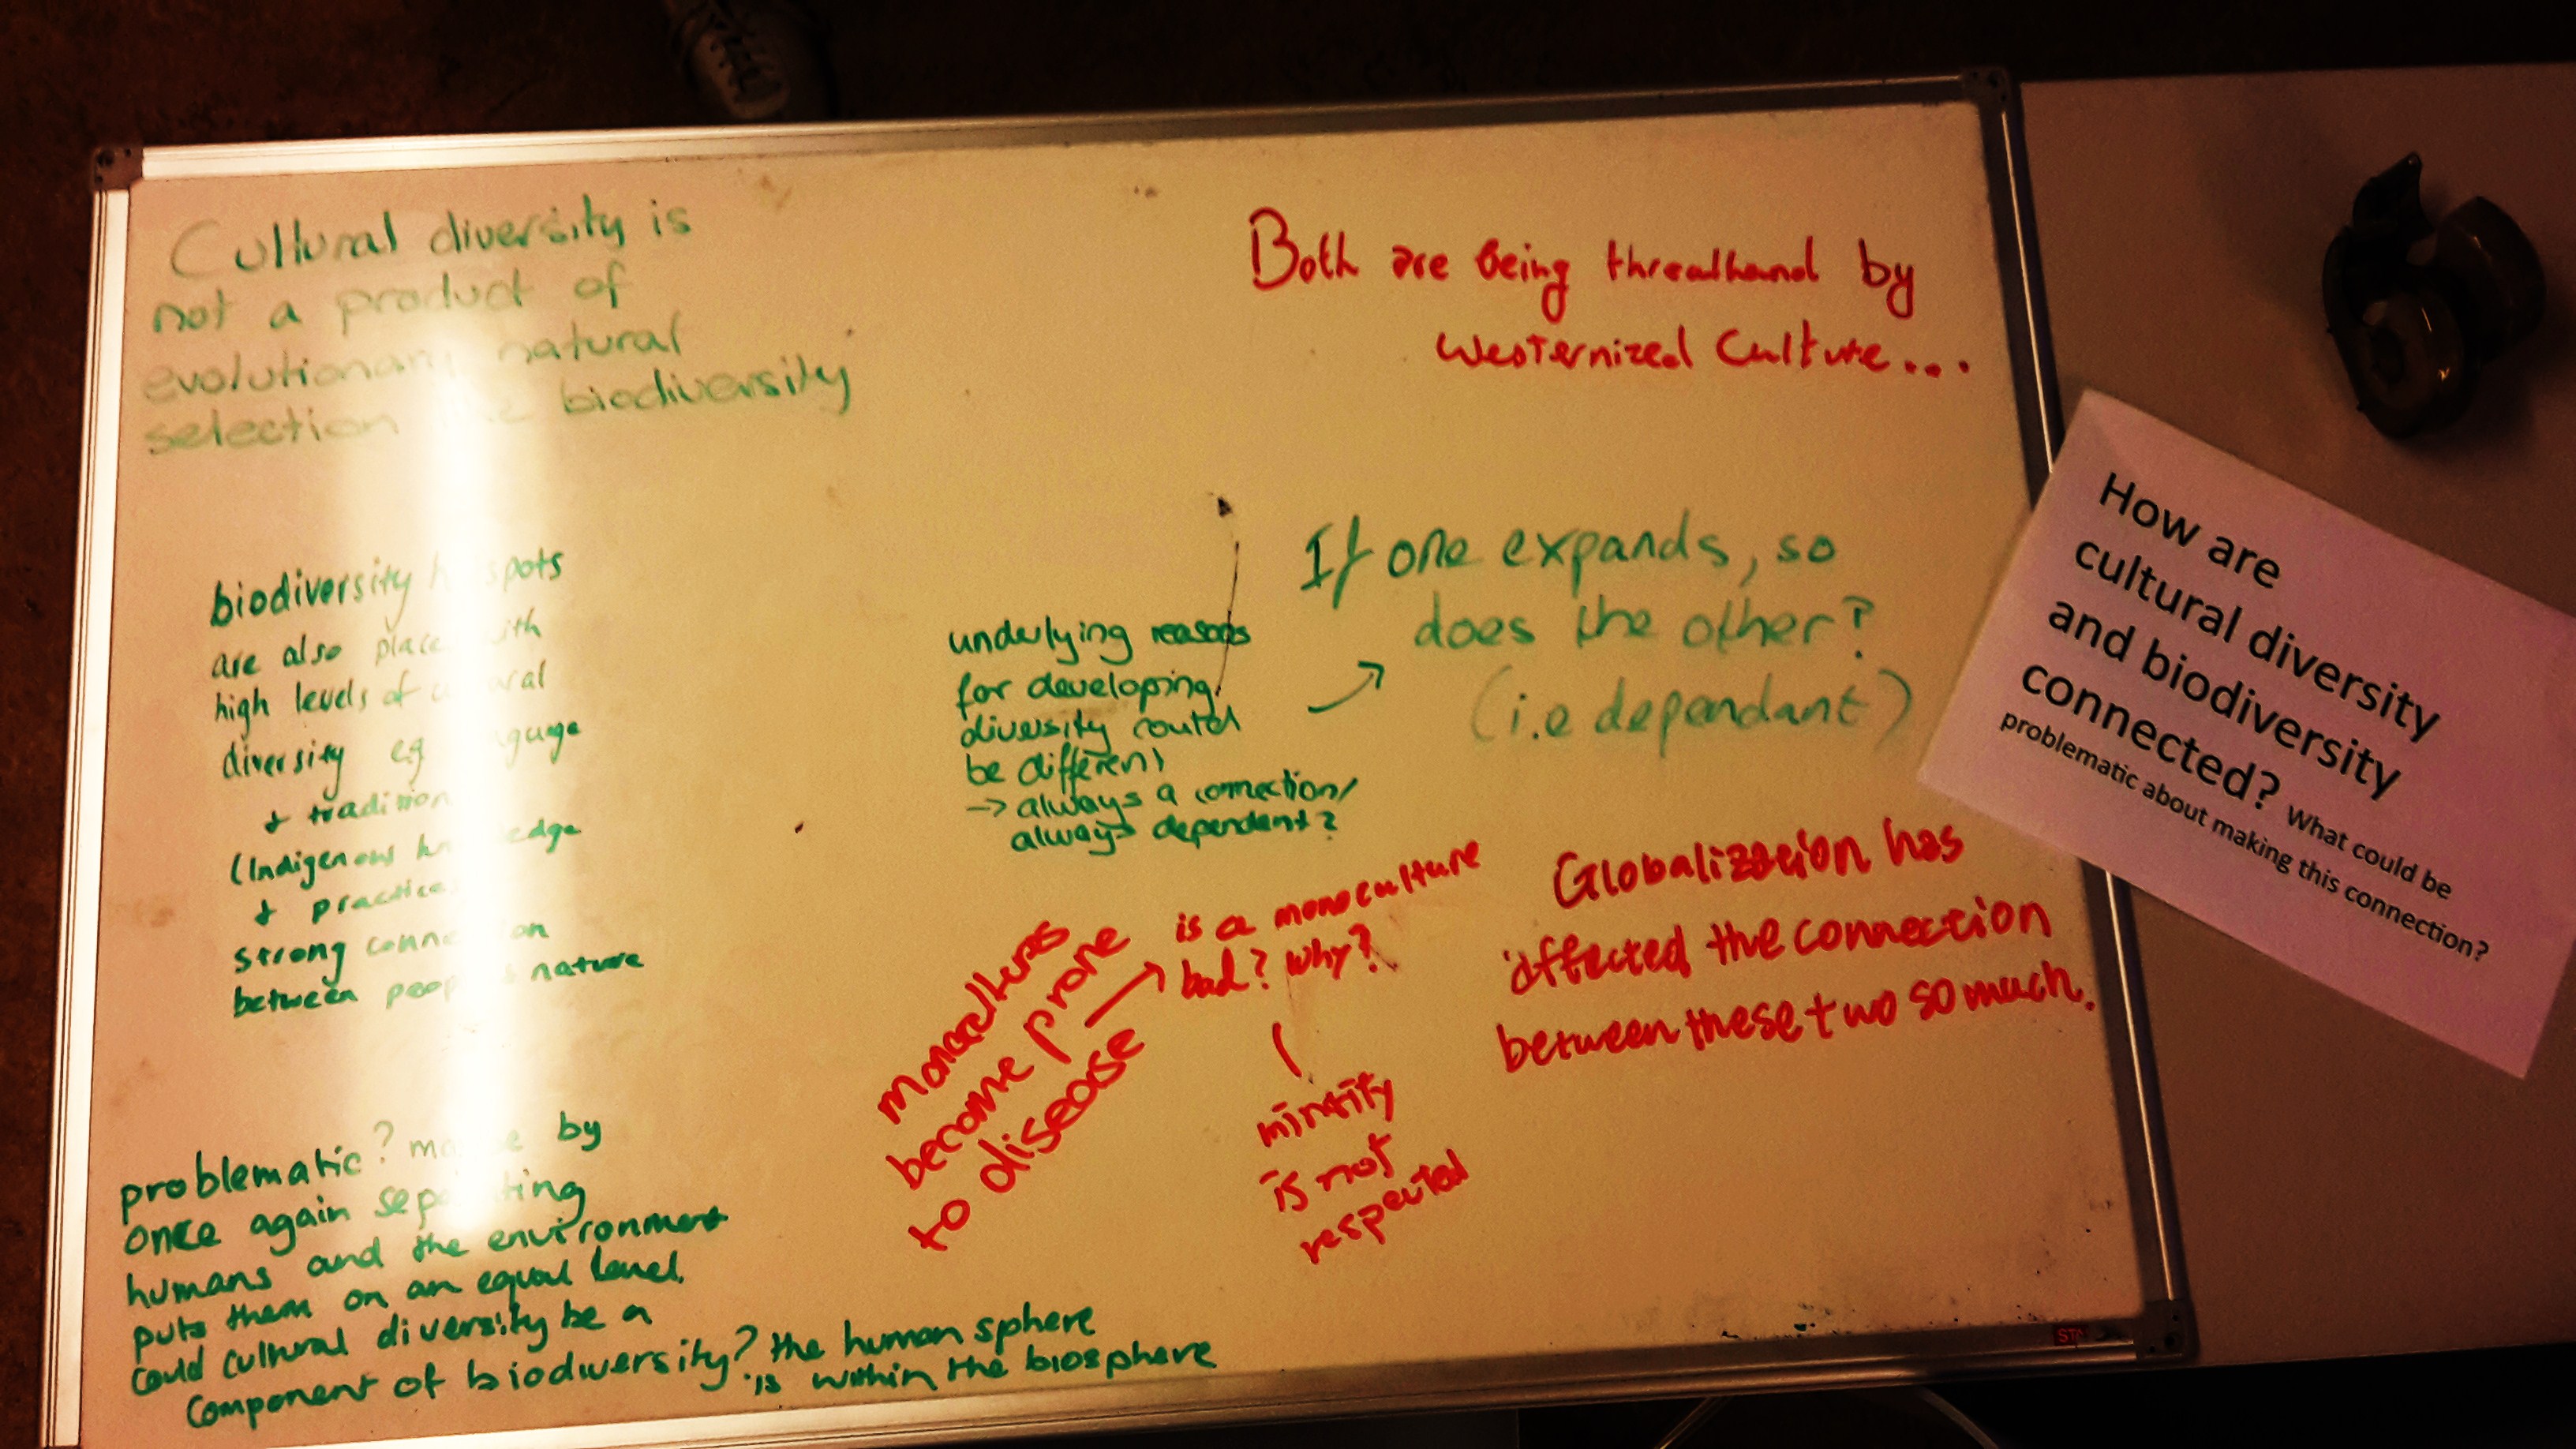 Cultural diversity is
not a product of
evolutionary natural
selection biodiversity
biodiversity spots
are also place
high levels of
diversity eg
+ tradition
(Indigenous
+ practice
strong
between nature
problematic? by
once again
humans and the environment
puts them on an equal level.
Could cultural diversity be a
component of biodiversity? the human sphere
is within the biosphere
underlying reasons
for developing
diversity could
be different
→ always a connection/
always dependent?
Both are being by
Westernized Culture...
If one expands, so
does the other?
(i.e dependant)
become prone
to disease
is a monoculture
bad? why?
is not
respected
Globalization has
affected the connection
between these two so much.
How are
cultural diversity
and biodiversity
connected? What could be
problematic about making this connection?